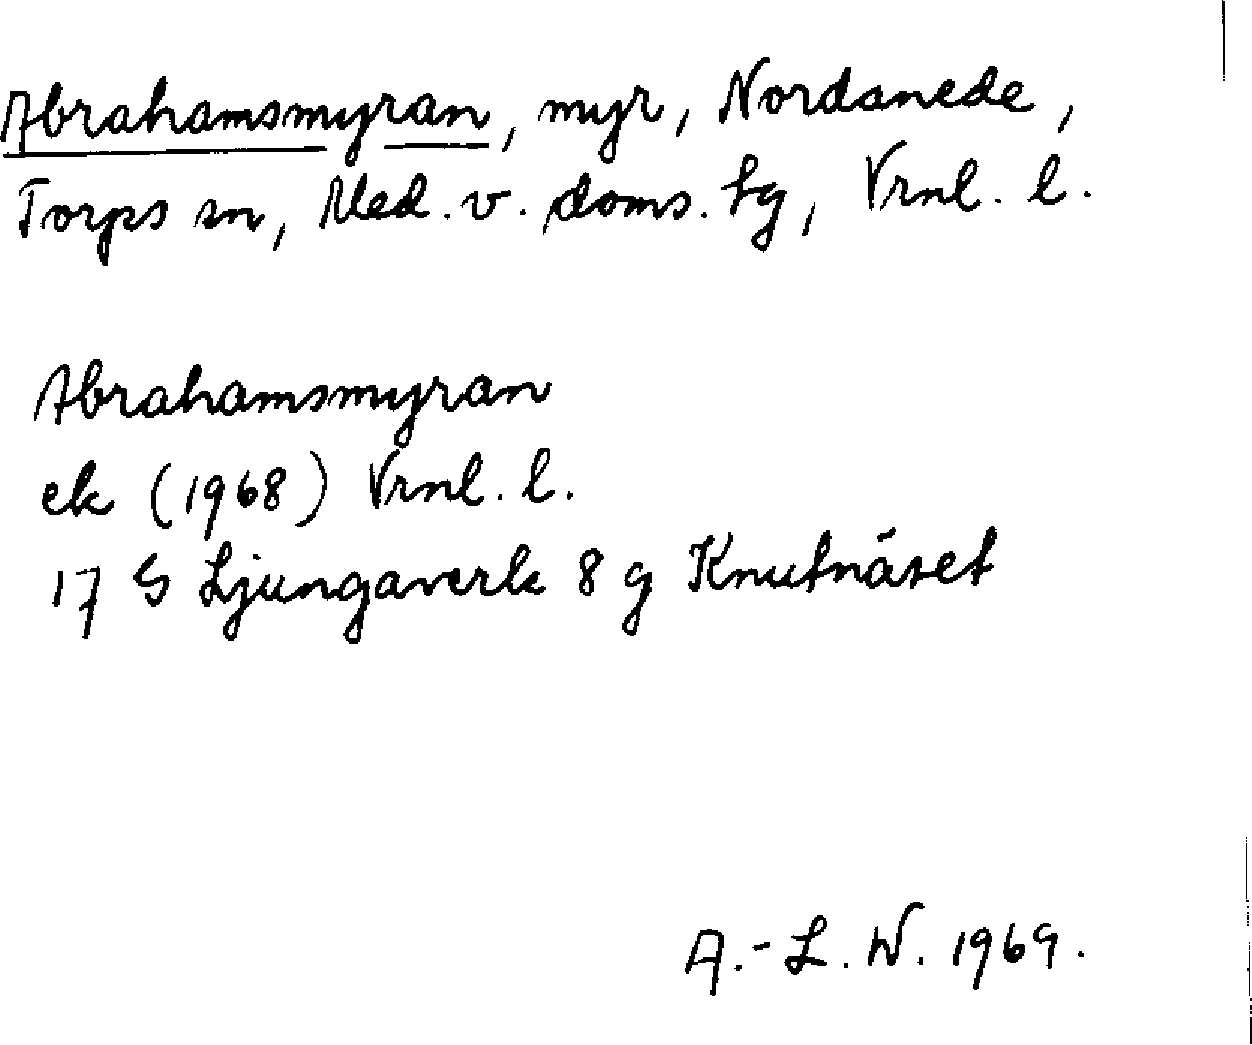 Abrahamsmyran, myr, Nordanede,
Torps sn, Med. v. doms. tg, Vrnl. l.
Abrahamsmyran
ek (1968) Vrnl. l.
17 G Ljungaverk 8 g Knutnäset
A.-L. W. 1969.